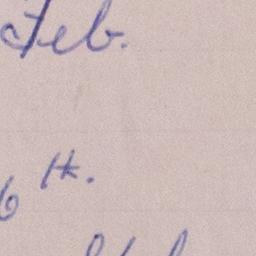 Feb.
6th.